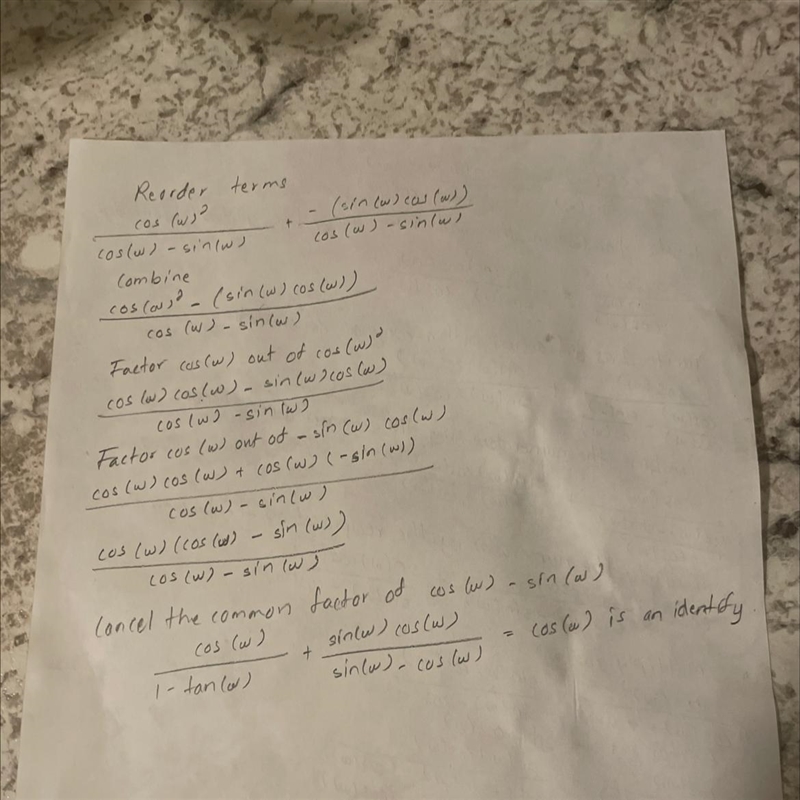 Reorder terms
cos(w)² / cos(w) - sin(w) + -(sin(w) cos(w)) / cos(w) - sin(w)
Combine
cos(w)² - (sin(w) cos(w)) / cos(w) - sin(w)
Factor cos(w) out of cos(w)²
cos(w) cos(w) - sin(w) cos(w) / cos(w) - sin(w)
Factor cos(w) out of - sin(w) cos(w)
cos(w) cos(w) + cos(w) (-sin(w)) / cos(w) - sin(w)
cos(w) (cos(w) - sin(w)) / cos(w) - sin(w)
Cancel the common factor of cos(w) - sin(w)
cos(w) / 1 - tan(w) + sin(w) cos(w) / sin(w) - cos(w) = cos(w) is an identify.